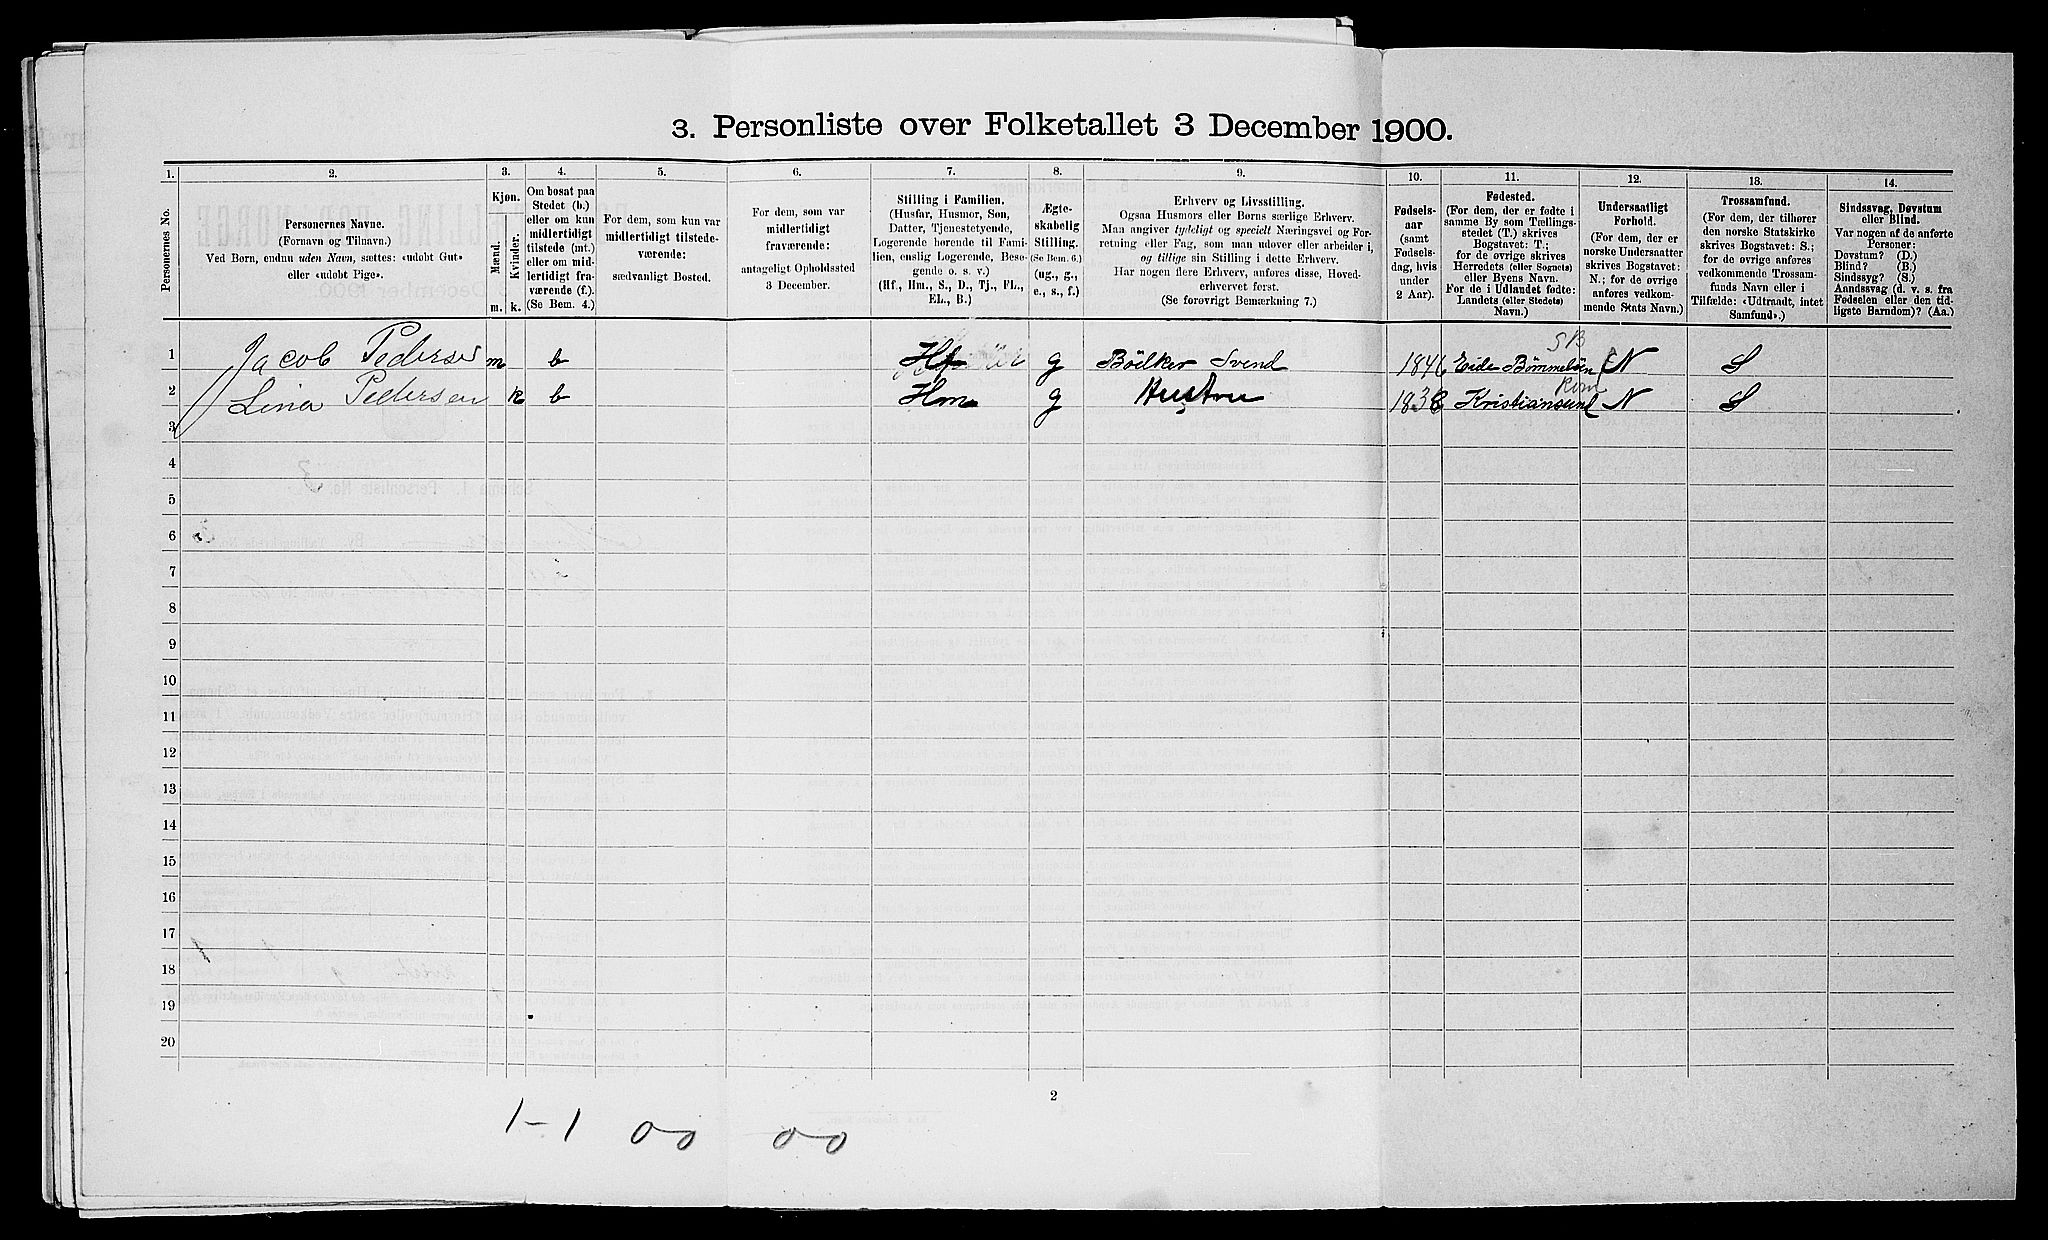 3. Personliste over Folketallet 3 December 1900.
1. 2. 3. 4. 5. 6. 7. 8. 9. 10. 11. 12. 13. 14.
Personernes No.
Personernes Navne.
(Fornavn og Tilnavn.)
Ved Børn, endnu uden Navn, sættes: «udøbt Gut»
eller «udøbt Pige».
Kjøn.
Mænd.
Kvinder.
m. k.
Om bosat paa
Stedet (b.)
eller om kun
midlertidigt
tilstede (mt.)
eller om mid-
lertidigt fra-
værende (f.).
(Se Bem. 4.)
For dem, som kun var
midlertidigt tilstede-
værende:
sædvanligt Bosted.
For dem, som var
midlertidigt
fraværende:
antageligt Opholdssted
3 December.
Stilling i Familien.
(Husfar, Husmor, Søn,
Datter, Tjenestetyende,
Logerende hørende til Fami-
lien, enslig Logerende, Besø-
gende o. s. v.)
(Hf., Hm., S., D., Tj., FL.,
EL., B.)
Ægte-
skabelig
Stilling.
(Se Bem. 6.)
(ug., g.,
e., s., f.)
Erhverv og Livsstilling.
Ogsaa Husmors eller Børns særlige Erhverv.
Man angiver tydeligt og specielt Næringsvei og For-
retning eller Fag, som man udøver eller arbeider i,
og tillige sin Stilling i dette Erhverv.
Har nogen flere Erhverv, anføres disse, Hoved-
erhvervet først.
(Se forøvrigt Bemærkning 7.)
Fødsels-
aar
(samt
Fødsels-
dag, hvis
under
2 Aar).
Fødested.
(For dem, der er fødte i
samme By som Tællings-
stedet (T.) skrives
Bogstavet: T.;
for de øvrige skrives
Herredets (eller Sognets)
eller Byens Navn.
For de i Udlandet fødte:
Landets (eller Stedets)
Navn.)
Undersaatligt
Forhold.
(For dem, der er
norske Undersaatter
skrives Bogstavet:
N.; for de øvrige
anføres vedkom-
mende Stats Navn.)
Trossamfund.
(For dem, der tilhører
den norske Statskirke
skrives Bogstavet: S.;
for de øvrige anføres
vedkommende Trossam-
funds Navn eller i
Tilfælde: «Udtraadt, intet
Samfund».)
Sindssvag, Døvstum
eller Blind.
Var nogen af de anførte
Personer:
Døvstum? (D.)
Blind? (B.)
Sindssyg? (S.)
Aandssvag (d. v. s. fra
Fødselen eller den tid-
ligste Barndom)? (Aa.)
SB
1 Jacob Pedersen m b Hf g Bödker Svend 1846 Eide Bømmeløen N S
Rom
2 Lina Pedersen k b Hm g Hustru 1838 Kristiansund N S
3
4
5
6
7
8
9
10
11
12
13
14
15
16
17
18
19
20
2
1-1 00 00